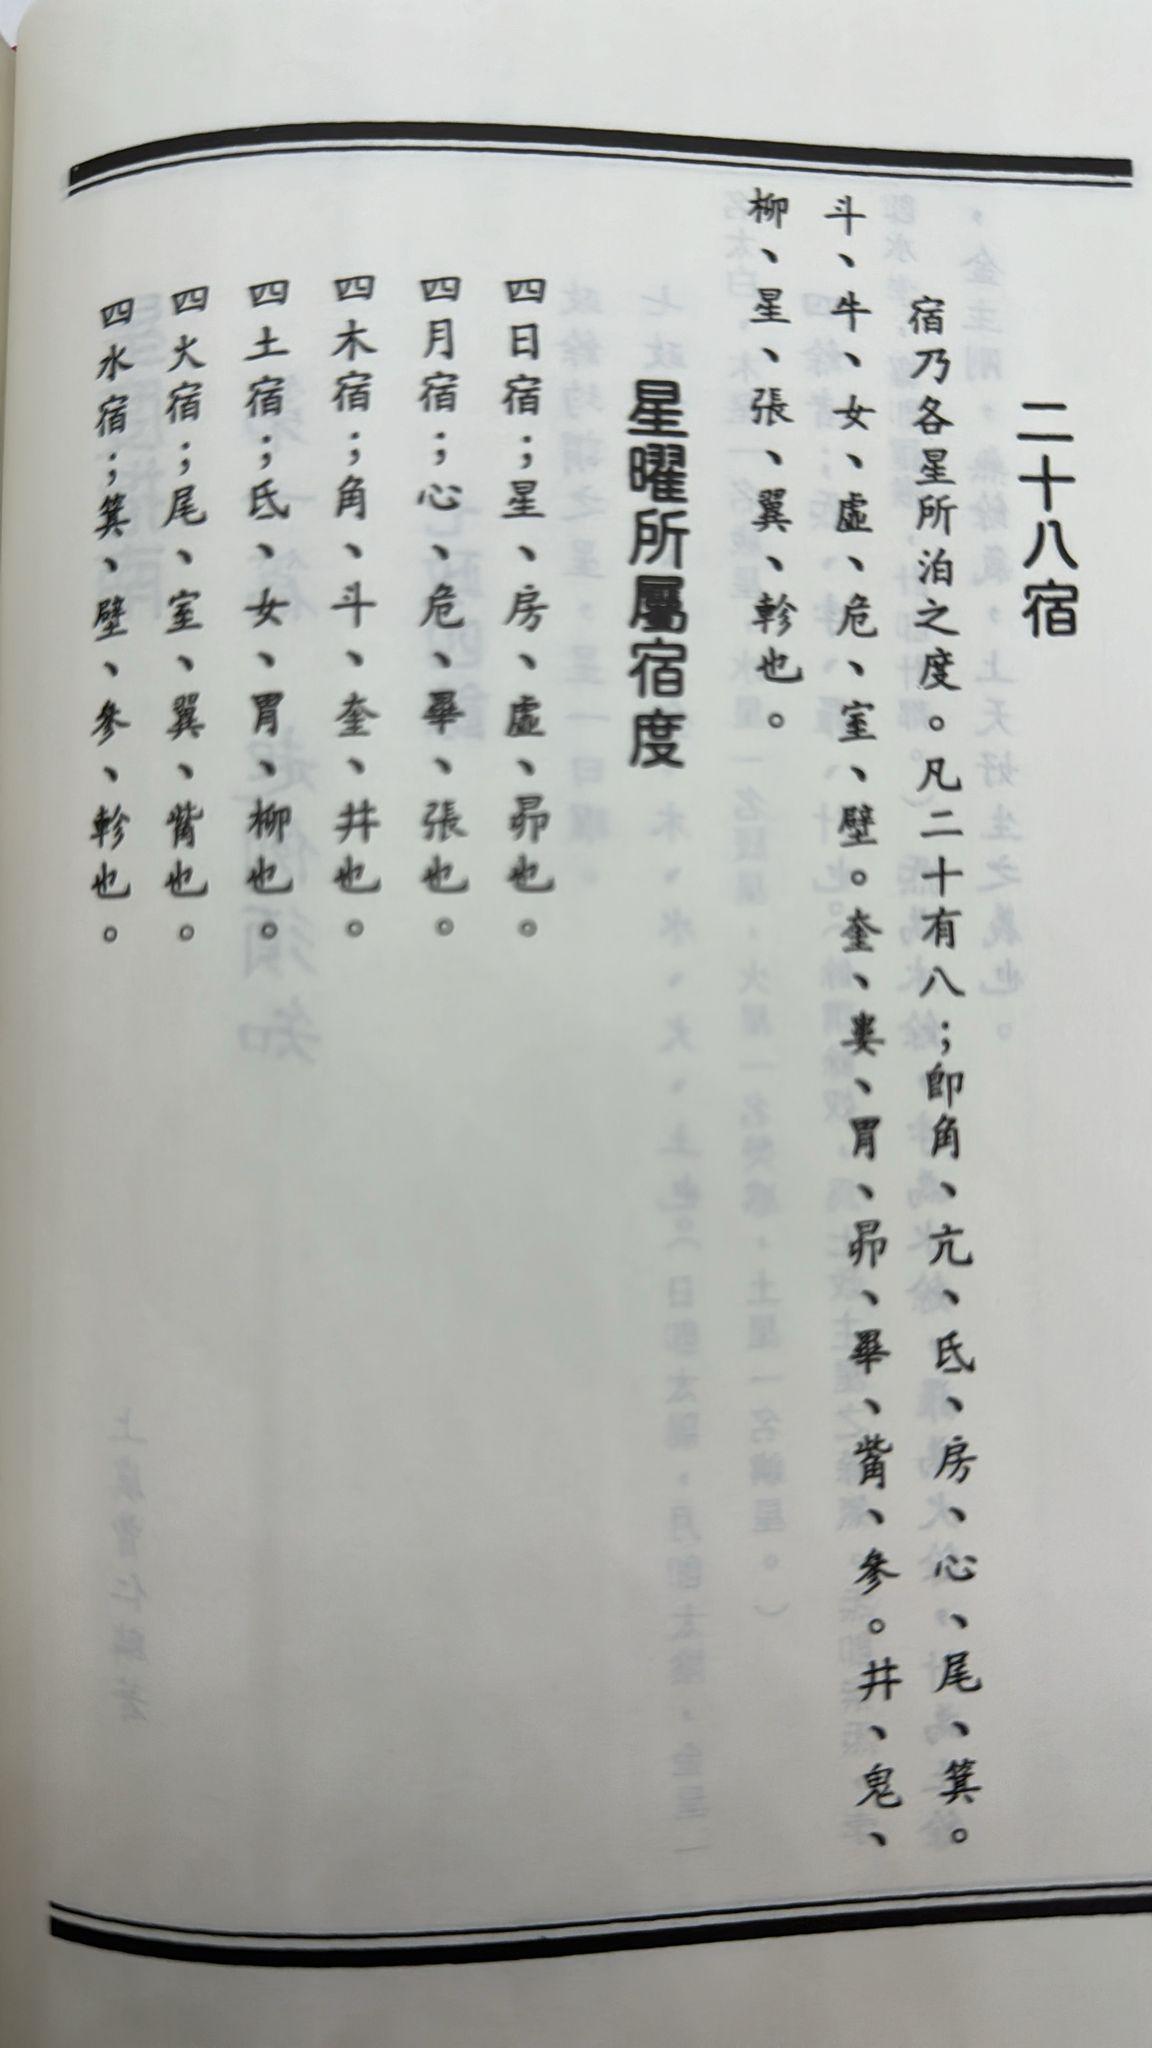 二十八宿
宿乃各星所泊之度。凡二十有八；卽角、亢、氐、房、心、尾、箕。
斗、牛、女、虛、危、室、壁。奎、婁、胃、昴、畢、觜、參。井、鬼、
柳、星、張、翼、軫也。
星曜所屬宿度
四日宿；星、房、虛、昴也。
四月宿；心、危、畢、張也。
四木宿；角、斗、奎、井也。
四土宿；氐、女、胃、柳也。
四火宿；尾、室、翼、觜也。
四水宿；箕、壁、參、軫也。